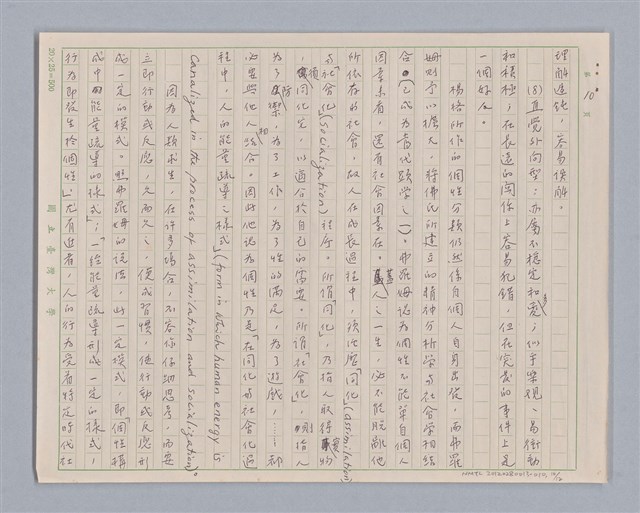 第 10 頁
理解遲鈍，容易誤解。
(8) 直覺外向型：亦屬不穩定和善變；似乎樂觀、易衝動
和積極；在長遠的關係上容易犯錯，但在突發的事件上是
一個好友。
楊格所作的個性分類仍然係自個人自身出發，而弗羅
姆則予以擴大，將佛氏所建立的精神分析學與社會學相結
合（已成為當代顯學之一）。弗羅姆認為個性不能單自個人
因素來看，還有社會因素在。蓋人之一生，必不能脫離他
所依存的社會，故人在成長過程中，須從歷「同化」(assimilation)
與「社會化」(Socialization)程序。所謂「同化」，乃指人取得實物
，同化它，以適合於自己的需要。所謂「社會化」，則指人
為了防禦，為了工作，為了性的滿足，為了遊戲，……都
必要與他人結合。因此他認為個性乃是「在同化與社會化過
程中，人的能量疏導之樣式」(form in which human energy is
canalized in the process of assimilation and socialization)。
因為人類求生，在許多場合，不容你仔細思考，而要
立即行動或反應，久而久之，便成習慣，使行動或反應形
成一定的模式。照弗羅姆的說法，此一定模式，即「個性構
成中能量疏導的樣式；「一經能量疏導形成一定的樣式，
行為即發生於個性」。尤有進者，人的行為受着特定時代社
20×25=500
國立臺灣大學